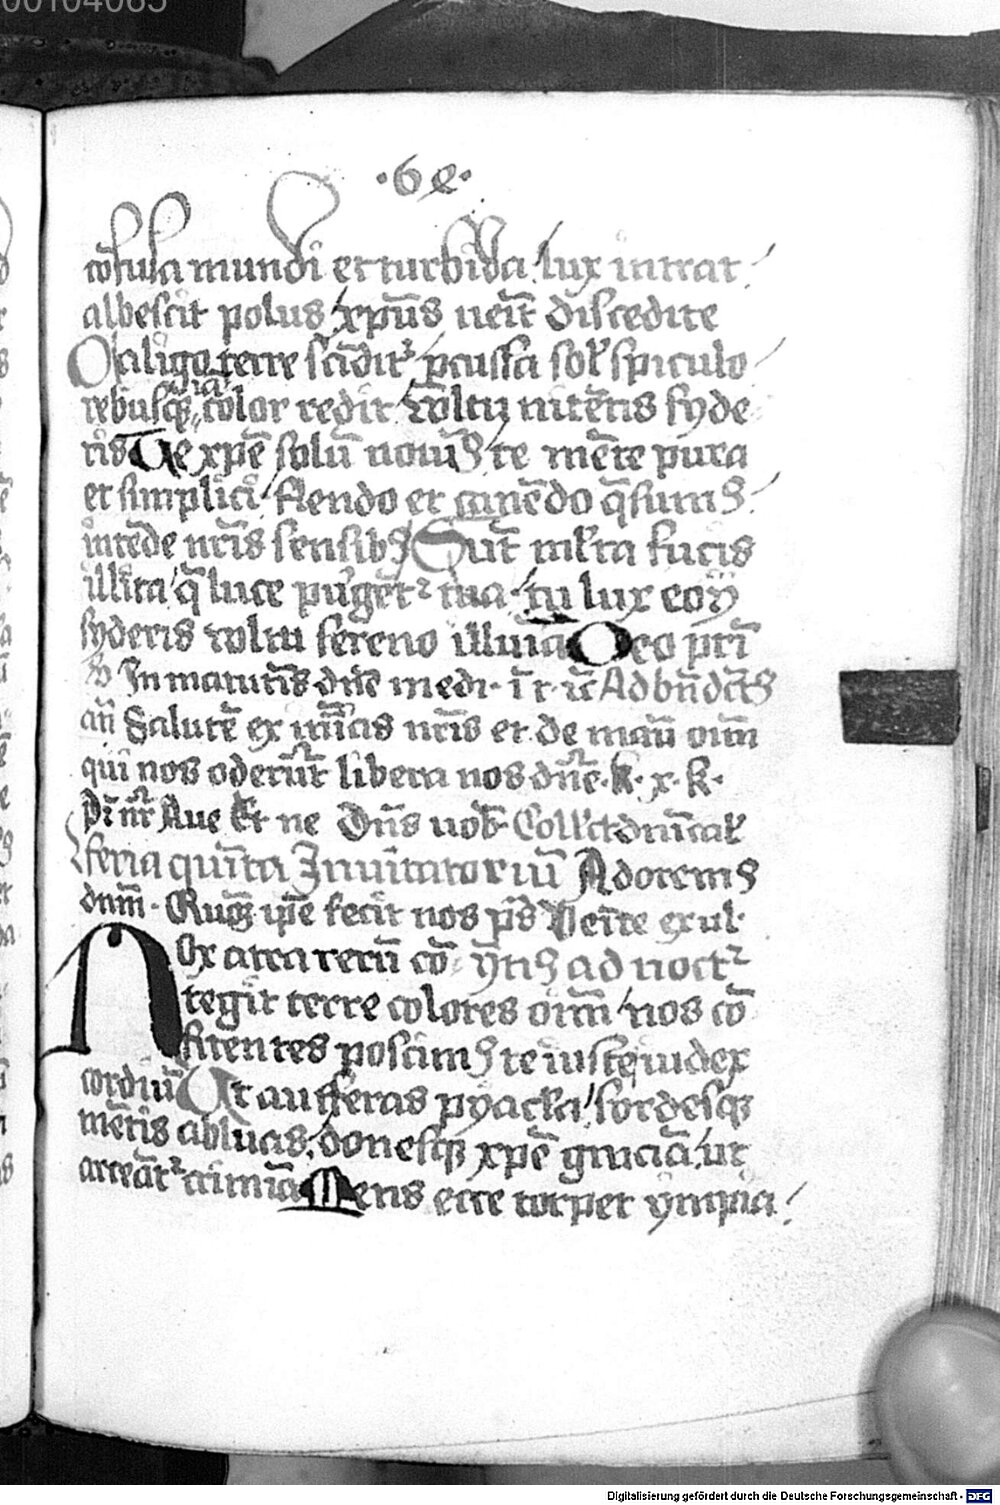 00104065
·6e·
cōfusa mundi et turbida / lux intrat /
albescit polus / xpūs veīt discedite
Caligo terre scīdit᷑ pcussa sol' spiculo /
rebusq᷒ iā color redit / voltu nitētis syde
ris Te xpē solū novim᷒ / te mēte pura
et simplici / flendo et canēdo q̄sum᷒ /
intēde nr̄is sensib᷒ Sūt ml'ta fucis
illita / q̄ luce purgēt᷑ tua / tu lux eoy
syderis voltu sereno illumīa Deo prī
In matutīs dn̄e medi· ī t· Ad bn̄dct᷒
an̄ Salutē ex inīcis nr̄is et de manu oīm
qui nos oderūt libera nos dn̄e· k· x· k·
Pr̄ nr̄ Ave Et ne Dn̄s vob· Coll'ct dnīcal'
feria quīta Invitatoriū Adorem᷒
dnm̄· Quoꝫ ip̄e fecit nos ps̄ Venite exul·
Nox atra rerū cō ytī᷒ ad noct᷑
tegit terre colores oīm / nos cō
fitentes poscim᷒ te iuste iudex
cordiū Ut aufferas pyacla / sordesqꝫ
mētis abluas / donesqꝫ xpē graciā / ut
arceāt᷑ crimīa Mens ecce torpet ympia /
Digitalisierung gefördert durch die Deutsche Forschungsgemeinschaft - DFG